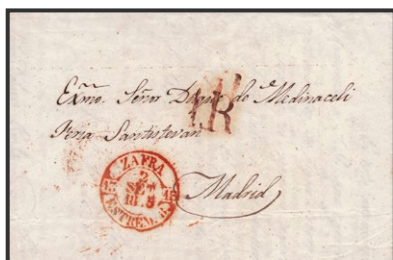 Exmo. Señor Duque de Medinaceli
Feria Santistevan
1R
ZAFRA
2
SET
13 13
ESTREM. B.
Madrid